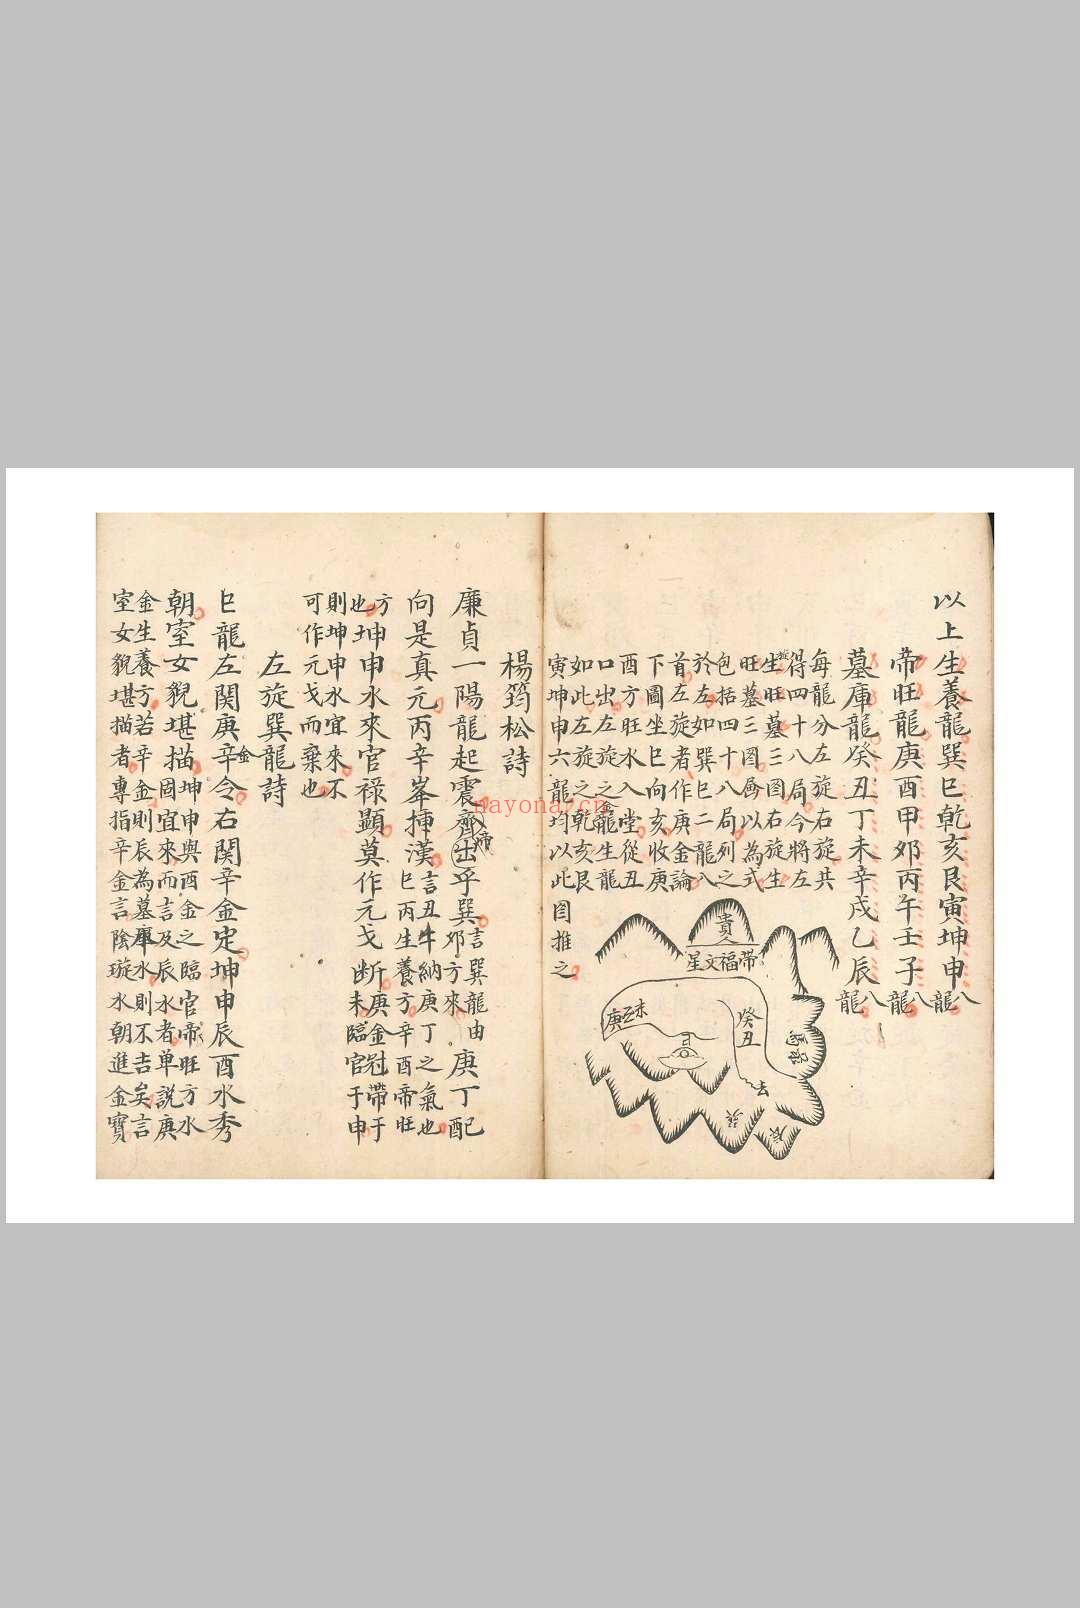 以上生養龍巽巳乾亥艮寅坤申八龍
帝旺龍庚酉甲卯丙午壬子八龍
墓庫龍癸丑丁未辛戌乙辰八龍
每龍分左旋右旋共
得四十八局今將左
旋
生旺墓三图右旋生
旺墓三图屑以為式
包括四十八局列之
於左如巽巳二龍八
首左旋者作庚金論
下圖坐巳向亥收庚
酉方旺水入堂從丑
口出左旋之金龍生龍
如此左旋之乾亥艮
寅坤申六龍均以此图推之
貴人
帶福文星
庚
未
癸丑
去
楊筠松詩
廉貞一陽龍起震齊出乎巽言巽龍由
卯方來
庚丁配
向是真元丙辛峯揷漢言丑牛納庚丁之氣也
巳丙生養方辛酉帝旺
方
也
坤申水來官禄顯莫作元戈断庚金冠帶于
未臨官于申
則坤申水宜來不
可作元戈而棄也
左旋巽龍詩
巳龍左関庚辛金令右関辛金定坤申辰酉水秀
朝室女貌堪描坤申與酉金之臨官帝旺方水
固宜來而言及辰水者单説庚
金生養方若辛金則辰為墓庫水則不吉矣言
室女貌堪描者專指辛金言陰璇水朝進金寶
nayona.cn